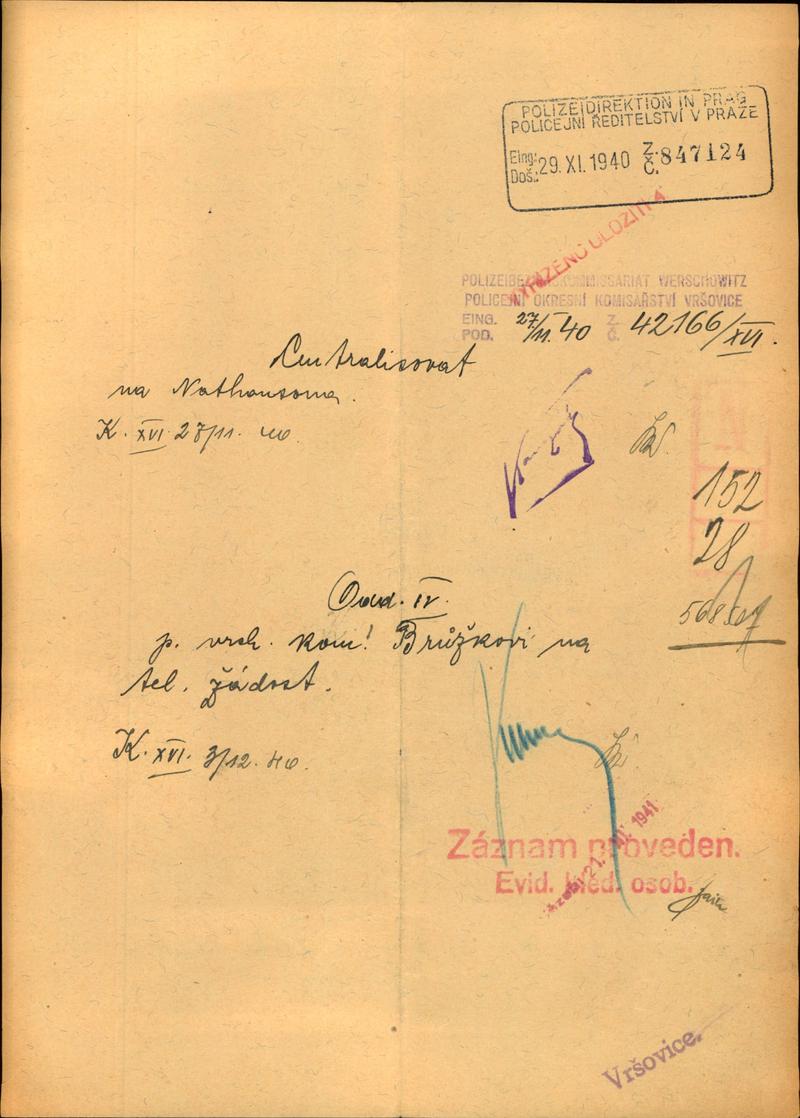 POLIZEIDIREKTION IN PRAG
POLICEJNÍ ŘEDITELSTVÍ V PRAZE
Eing: Doš.: 29. XI. 1940 Z. Č. 847124
VYŘÍZENO ULOŽITI
POLIZEIBEZIRKSKOMMISSARIAT WERSCHOWITZ
POLICEJNÍ OKRESNÍ KOMISAŘSTVÍ VRŠOVICE
EING. POD. 27/11. 40 Z. Č. 42166/XVI.
Centralisovat
na Nathansona.
K. XVI 27/11. 40.
152
28
Odd. IV.
p. vrch. kom! Brůžkovi na
tel. žádost.
K. XVI. 3/12. 40.
1941
Záznam proveden.
Evid. hled. osob.
Vršovice.